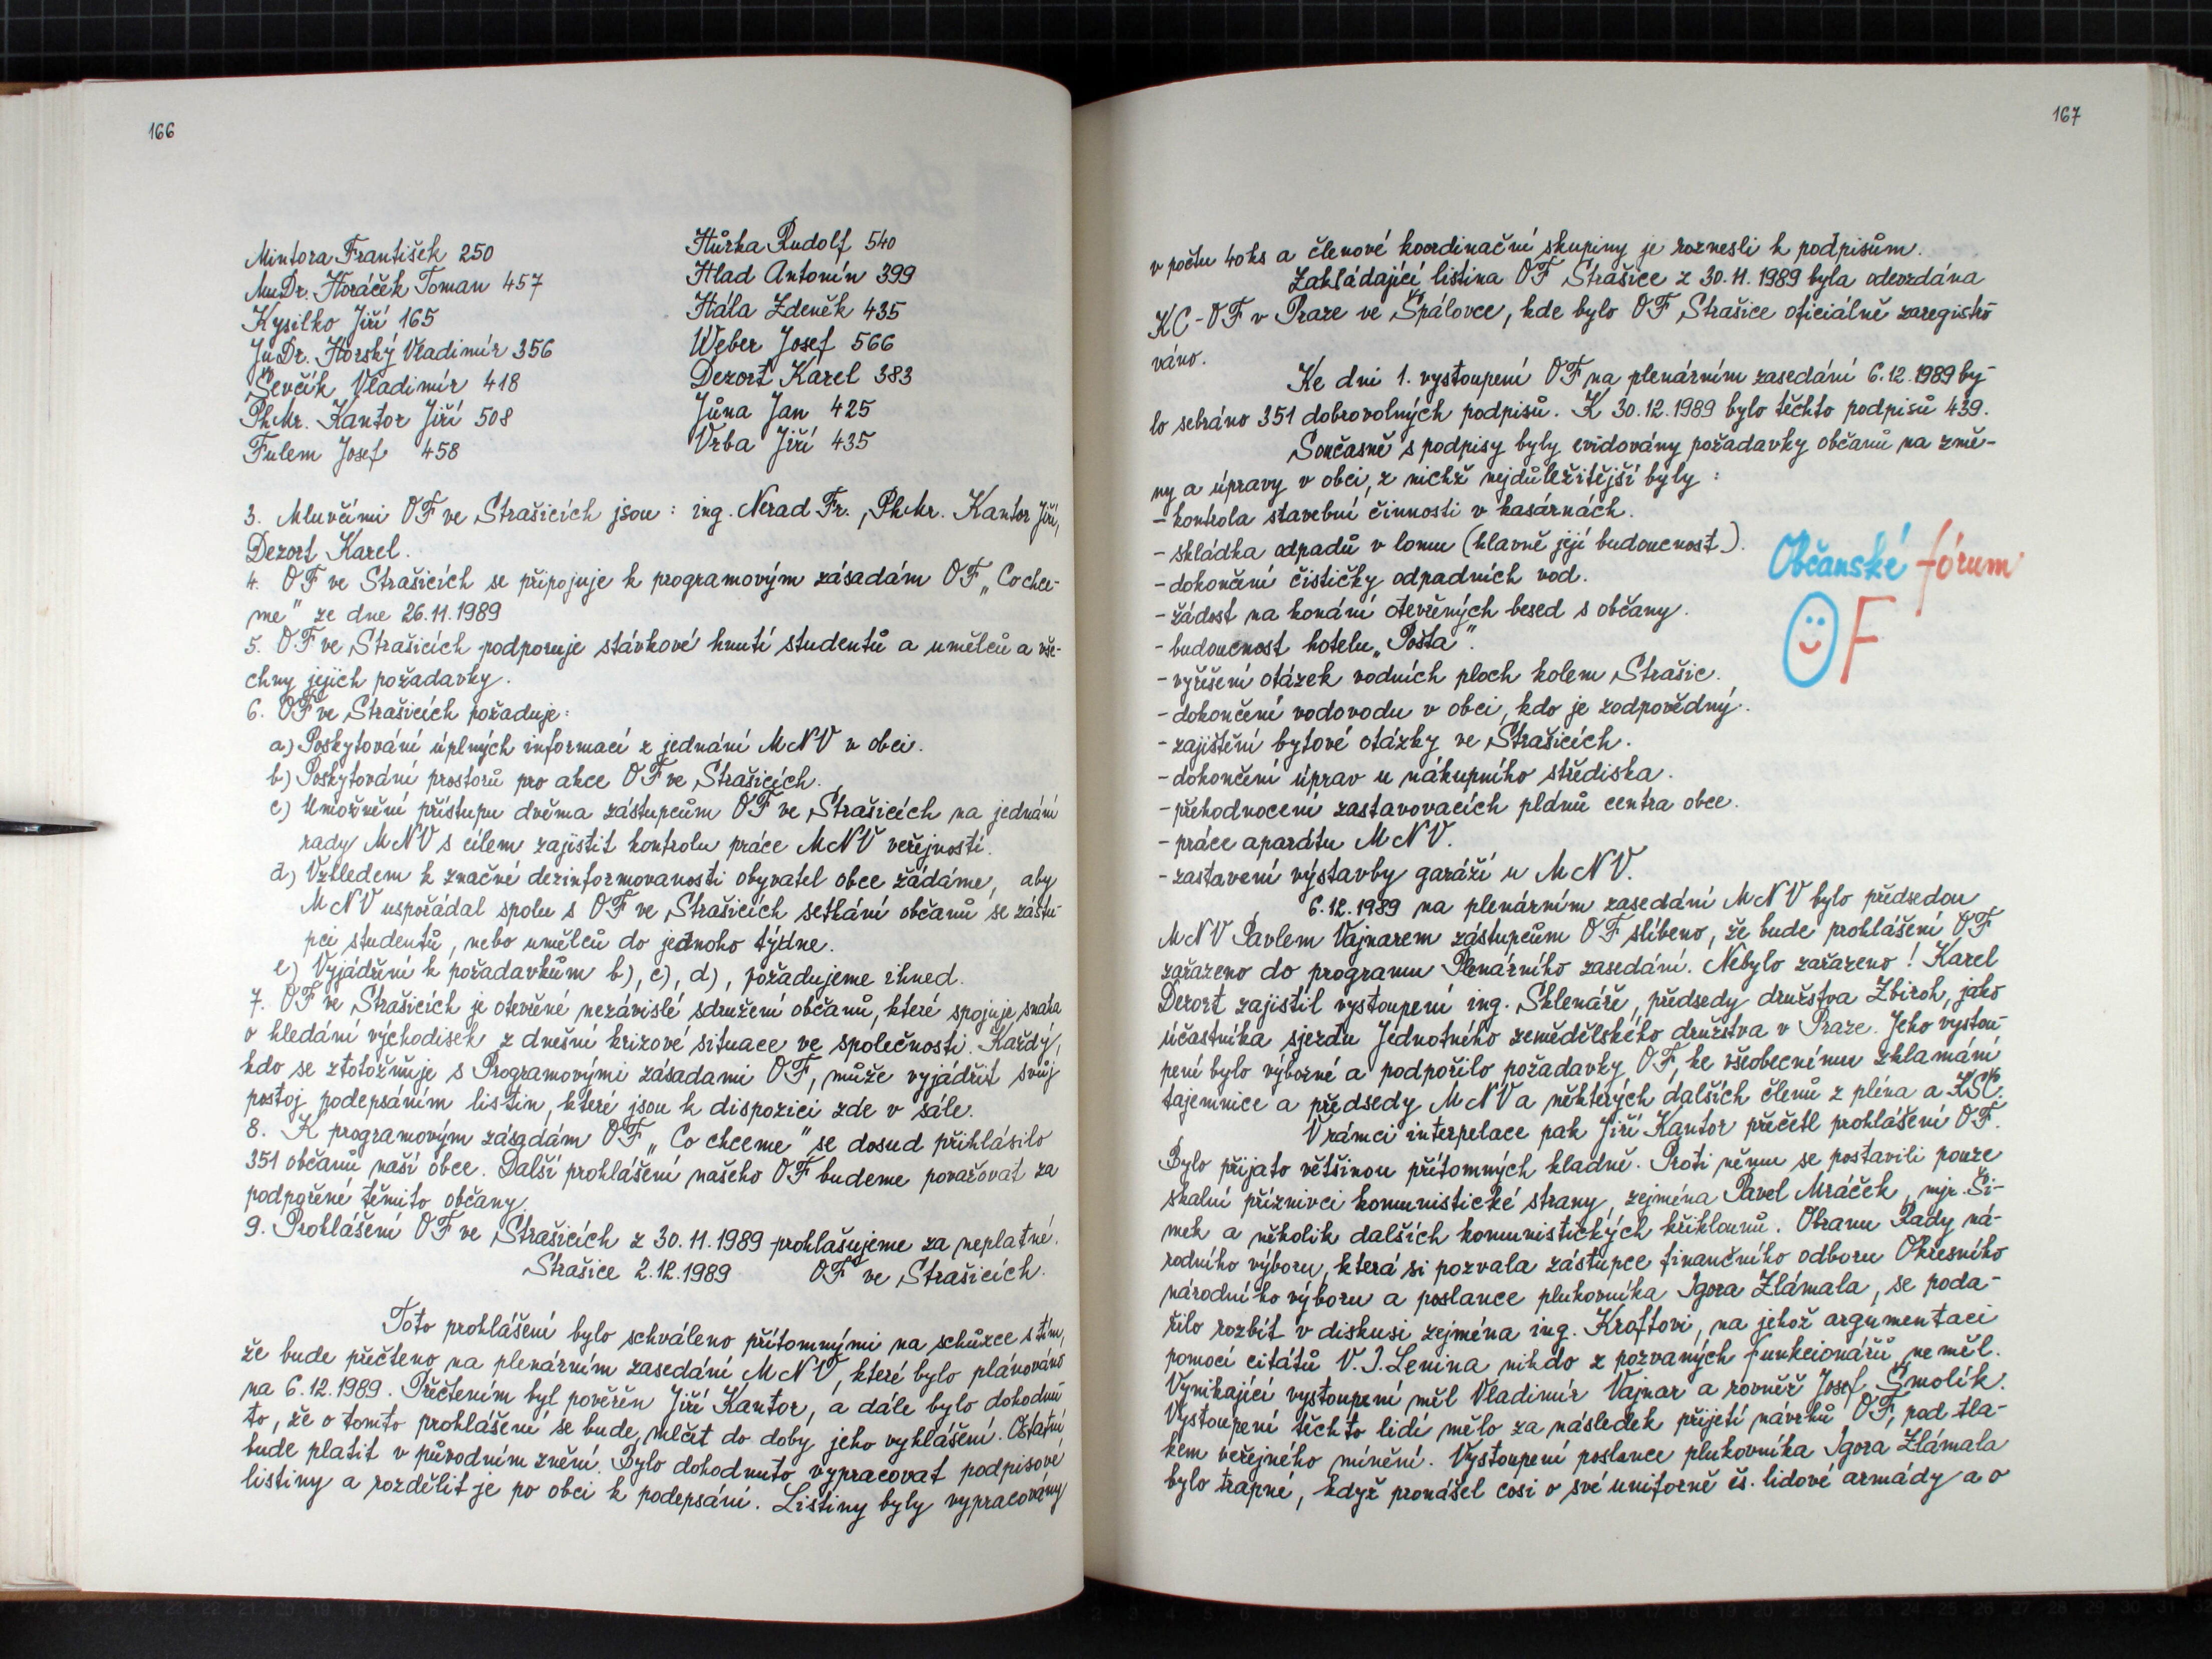 166
Mintora František 250
MuDr. Horáček Toman 457
Kysilko Jiří 165
JuDr. Horský Vladimír 356
Ševčík Vladimír 418
PhMr. Kantor Jiří 508
Fulem Josef 458
Hůrka Rudolf 540
Hlad Antonín 399
Hála Zdeněk 435
Weber Josef 566
Dezort Karel 383
Jůna Jan 425
Vrba Jiří 435
3. Mluvčími OF ve Strašicích jsou : ing. Nerad Fr., PhMr. Kantor Jiří,
Dezort Karel.
4. OF ve Strašicích se připojuje k programovým zásadám OF „Co chce-
me" ze dne 26.11.1989
5. OF ve Strašicích podporuje stávkové hnutí studentů a umělců a vše-
chny jejich požadavky.
6. OF ve Strašicích požaduje:
a) Poskytování úplných informací z jednání MNV v obci.
b) Poskytování prostorů pro akce OF ve Strašicích.
c) Umožnění přístupu dvěma zástupcům OF ve Strašicích na jednání
rady MNV s cílem zajistit kontrolu práce MNV veřejností.
d) Vzhledem k značné dezinformovanosti obyvatel obce žádáme, aby
MNV uspořádal spolu s OF ve Strašicích setkání občanů se zástu-
pci studentů, nebo umělců do jednoho týdne.
e) Vyjádření k požadavkům b), c), d), požadujeme ihned.
7. OF ve Strašicích je otevřené nezávislé sdružení občanů, které spojuje snaha
o hledání východisek z dnešní krizové situace ve společnosti. Každý,
kdo se ztotožňuje s Programovými zásadami OF, může vyjádřit svůj
postoj podepsáním listin, které jsou k dispozici zde v sále.
8. K programovým zásadám OF „Co chceme" se dosud přihlásilo
351 občanů naší obce. Další prohlášení našeho OF budeme považovat za
podpořené těmito občany.
9. Prohlášení OF ve Strašicích z 30.11.1989 prohlašujeme za neplatné.
Strašice 2.12.1989 OF ve Strašicích.
Toto prohlášení bylo schváleno přítomnými na schůzce s tím,
že bude přečteno na plenárním zasedání MNV, které bylo plánováno
na 6.12.1989. Přečtením byl pověřen Jiří Kantor, a dále bylo dohodnu-
to, že o tomto prohlášení se bude mlčet do doby jeho vyhlášení. Ostatní
bude platit v původním znění. Bylo dohodnuto vypracovat podpisové
listiny a rozdělit je po obci k podepsání. Listiny byly vypracovány
167
v počtu 40 ks a členové koordinační skupiny je roznesli k podpisům.
Zakládající listina OF Strašice z 30.11.1989 byla odevzdána
KC-OF v Praze ve Špálovce, kde bylo OF Strašice oficiálně zaregistro-
váno.
Ke dni 1. vystoupení OF na plenárním zasedání 6.12.1989 by-
lo sebráno 351 dobrovolných podpisů. K 30.12.1989 bylo těchto podpisů 439.
Současně s podpisy byly evidovány požadavky občanů na změ-
ny a úpravy v obci, z nichž nejdůležitější byly :
- kontrola stavební činnosti v kasárnách.
- skládka odpadů v lomu (hlavně její budoucnost).
- dokončení čističky odpadních vod.
- žádost na konání otevřených besed s občany.
- budoucnost hotelu „Pošta".
- vyřešení otázek vodních ploch kolem Strašic.
- dokončení vodovodu v obci, kdo je zodpovědný.
- zajištění bytové otázky ve Strašicích.
- dokončení úprav u nákupního střediska.
- přehodnocení zastavovacích plánů centra obce.
- práce aparátu MNV.
- zastavení výstavby garáží u MNV.
Občanské fórum
OF
6.12.1989 na plenárním zasedání MNV bylo předsedou
MNV Pavlem Vajnarem zástupcům OF slíbeno, že bude prohlášení OF
zařazeno do programu Plenárního zasedání. Nebylo zařazeno ! Karel
Dezort zajistil vystoupení ing. Sklenáře, předsedy družstva Zbiroh, jako
účastníka sjezdu Jednotného zemědělského družstva v Praze. Jeho vystou-
pení bylo výborné a podpořilo požadavky OF, ke všeobecnému zklamání
tajemnice a předsedy MNV a některých dalších členů z pléna a KSČ.
V rámci interpelace pak Jiří Kantor přečetl prohlášení OF.
Bylo přijato většinou přítomných kladně. Proti němu se postavili pouze
skalní příznivci komunistické strany, zejména Pavel Mráček, mjr. Ši-
mek a několik dalších komunistických křiklounů. Obranu Rady ná-
rodního výboru, která si pozvala zástupce finančního odboru Okresního
národního výboru a poslance plukovníka Igora Zlámala, se poda-
řilo rozbít v diskusi zejména ing. Kroftovi, na jehož argumentaci
pomocí citátů V. I. Lenina nikdo z pozvaných funkcionářů neměl.
Vynikající vystoupení měl Vladimír Vajnar a rovněž Josef Smolík.
Vystoupení těchto lidí mělo za následek přijetí návrhů OF, pod tla-
kem veřejného mínění. Vystoupení poslance plukovníka Igora Zlámala
bylo trapné, když pronášel cosi o své uniformě čs. lidové armády a o